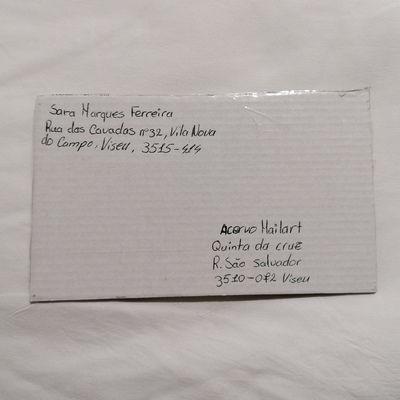 Sara Marques Ferreira
Rua das Cavadas nº32, Vila Nova
do Campo, Viseu, 3515-414
Acervo Mailart
Quinta da cruz
R. São Salvador
3510-072 Viseu